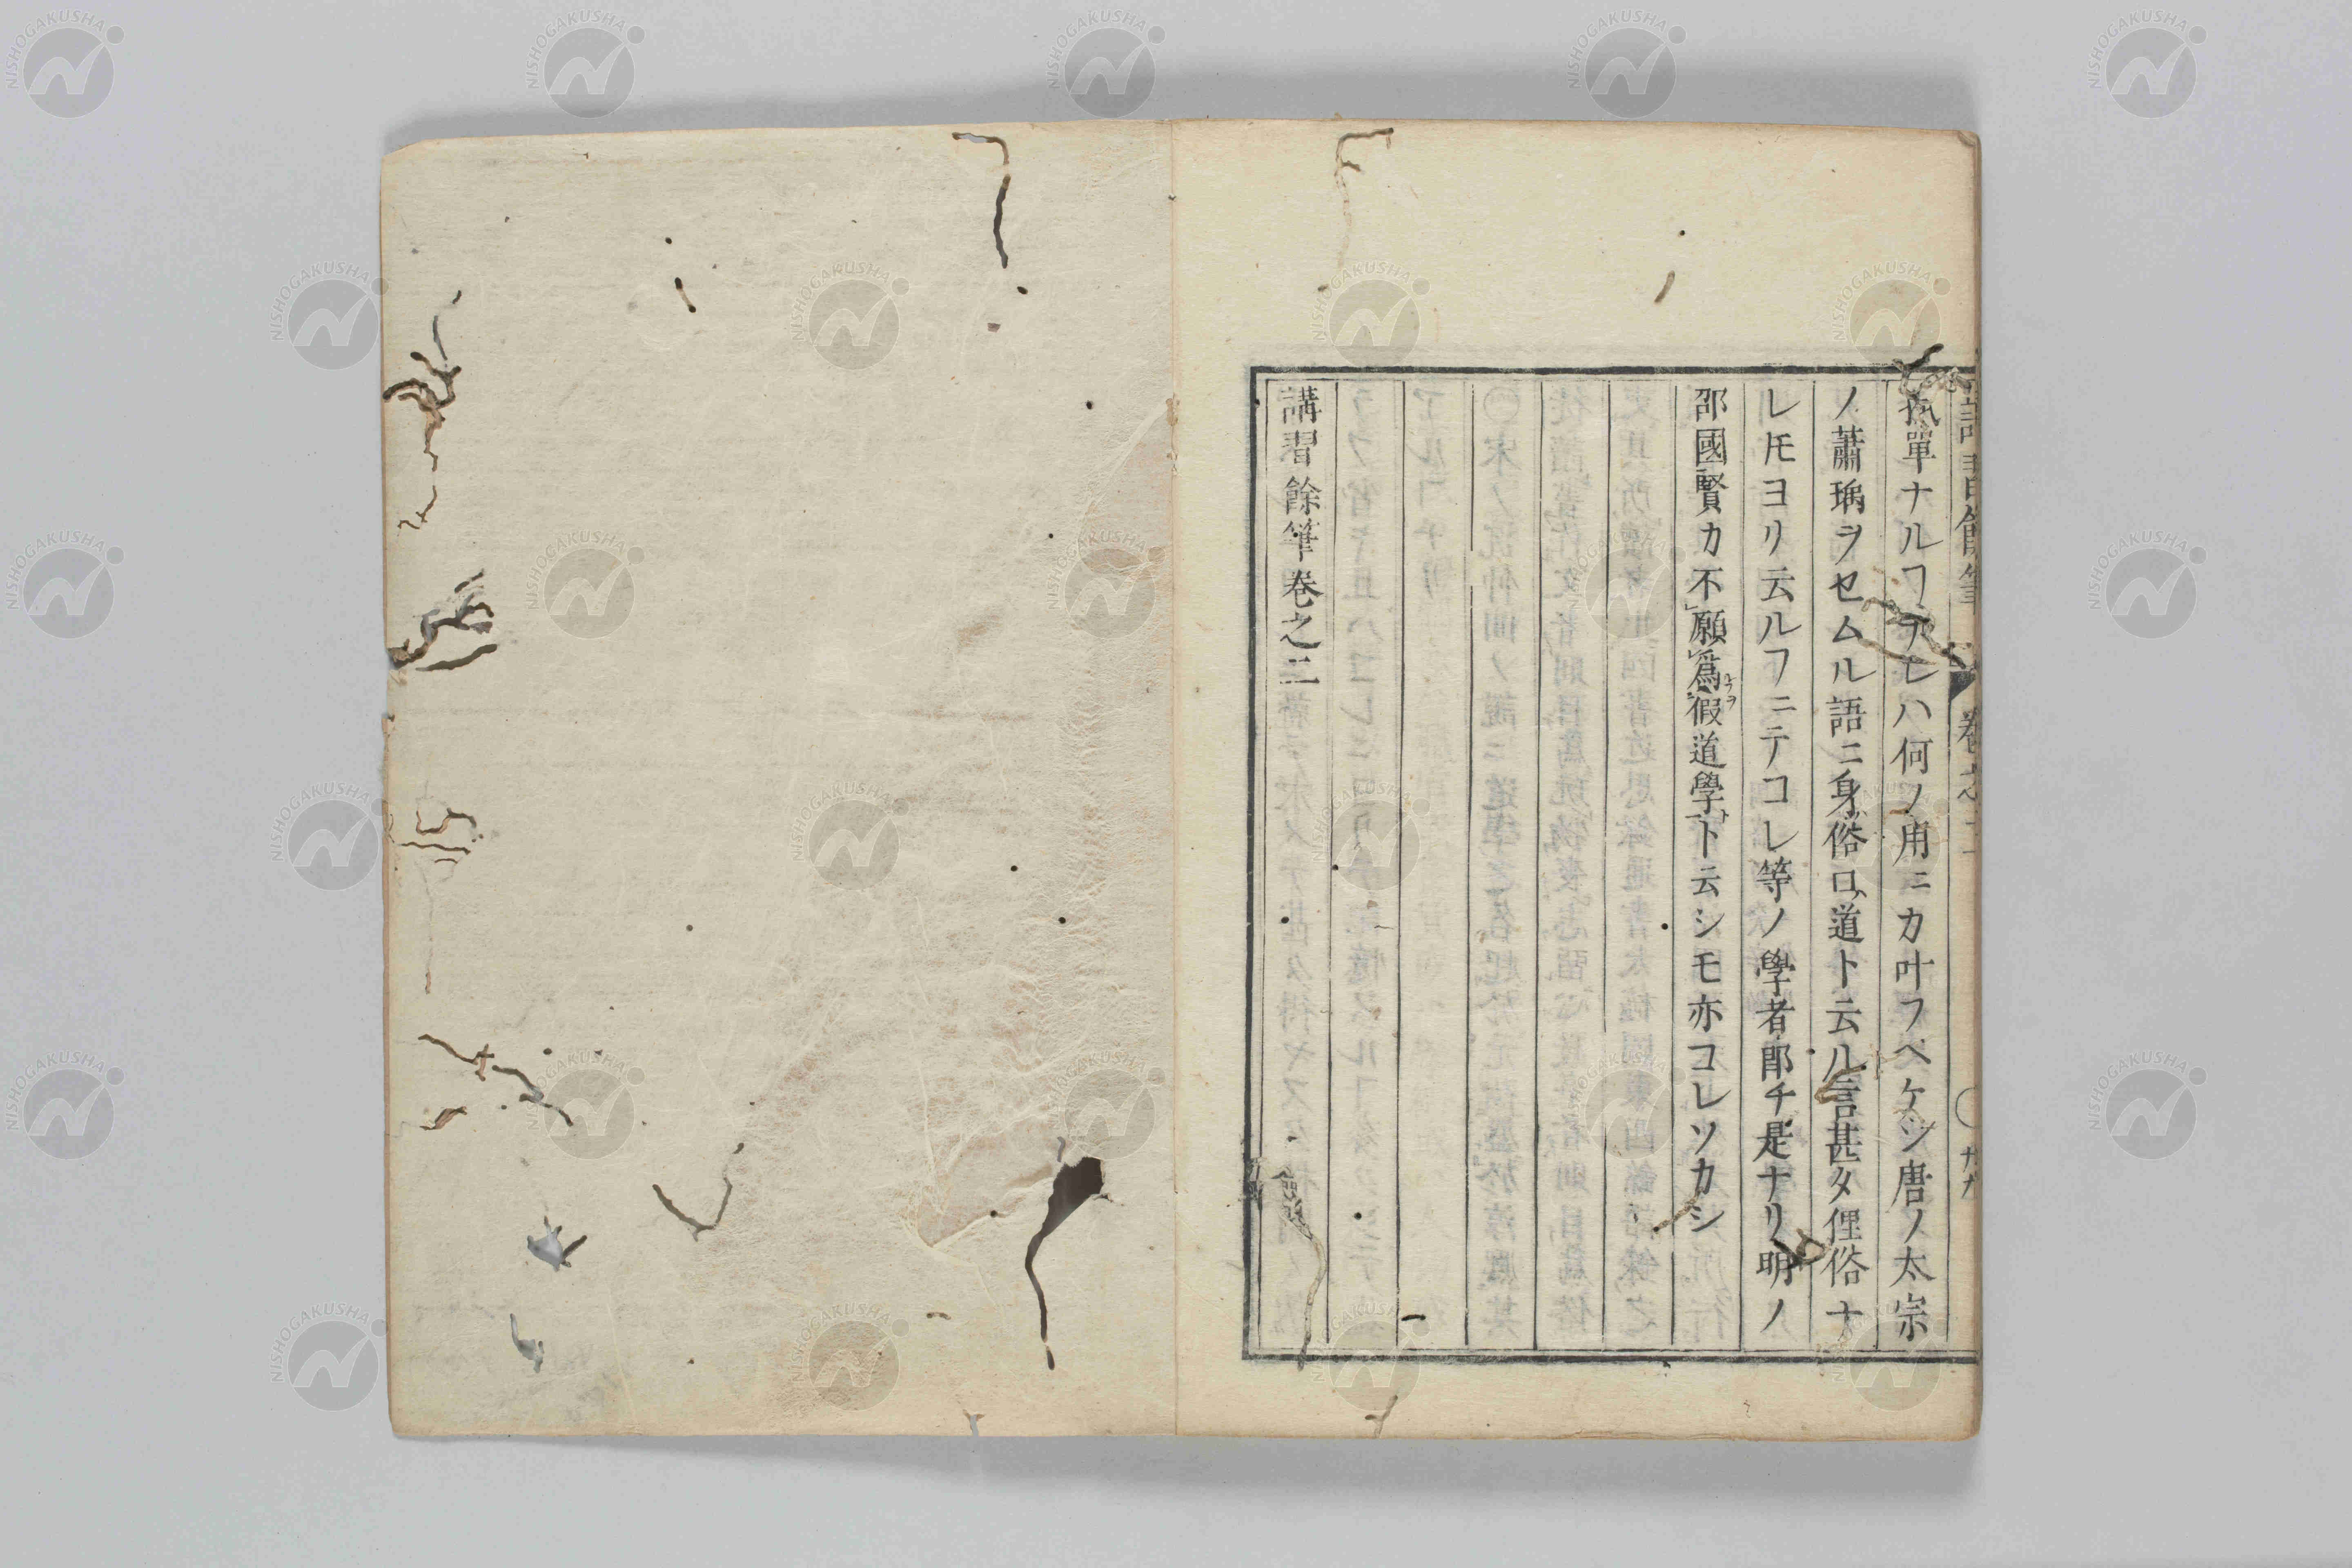 孤單ナルヿアレハ何ノ用ニカ叶フヘケン唐ノ太宗
ノ蕭瑀ヲセムル語ニ身俗口道ト云ル言甚タ俚俗ナ
レ𪜈ヨリ云ルヿニテコレ等ノ學者即チ是ナリ明ノ
邵國賢カ不願爲假道學ト云シモ亦コレソカシ
講習餘筆卷之二
NISHOGAKUSHA